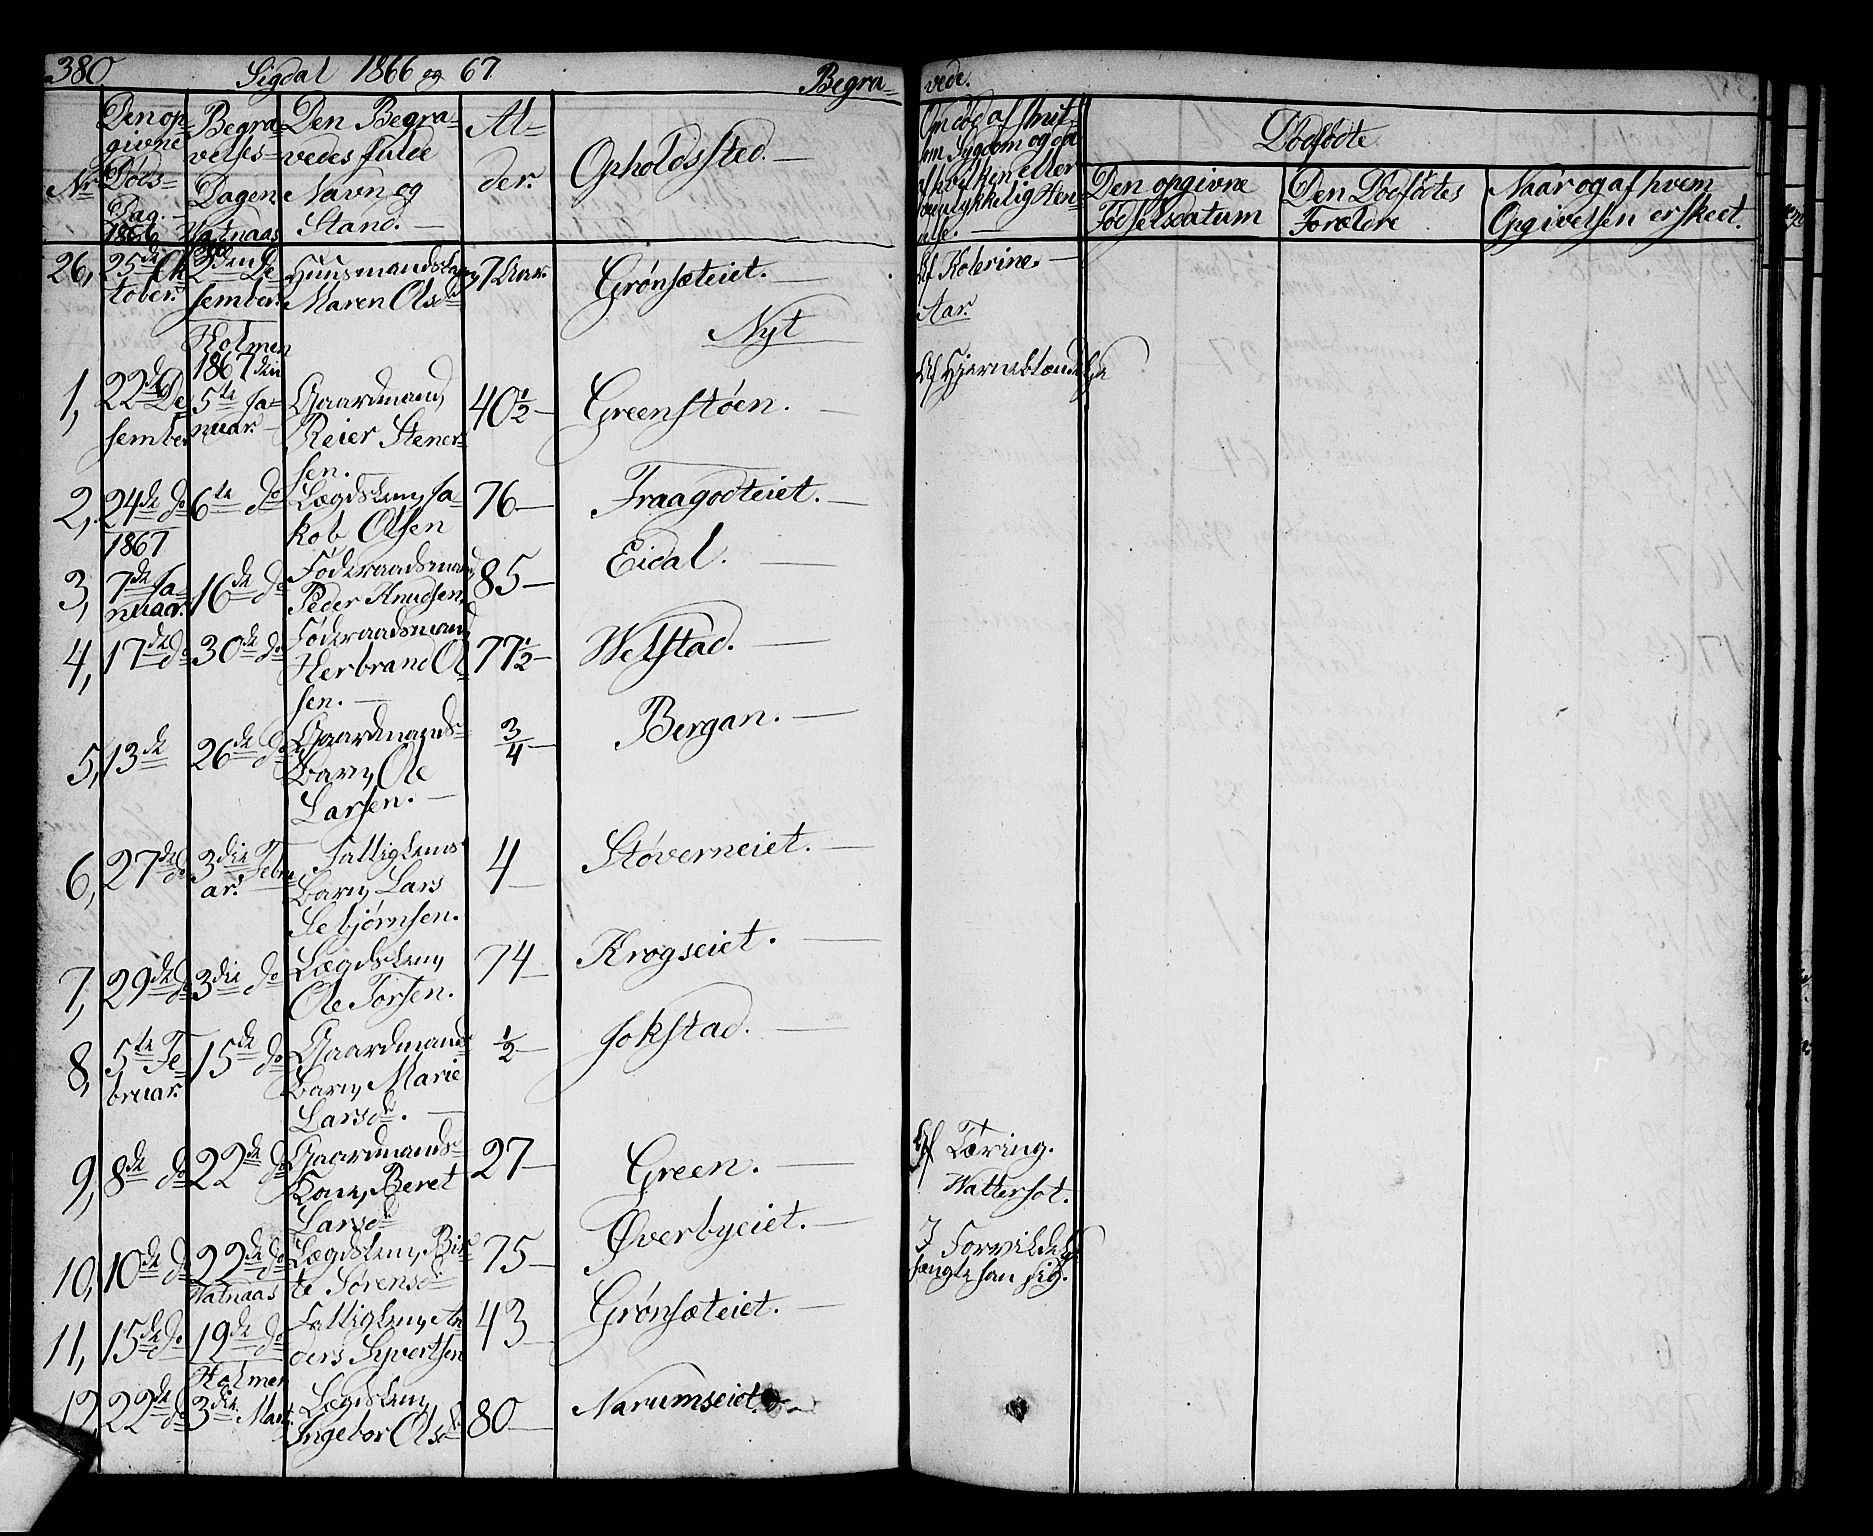 380 Sigdal 1866 og 67 Begra=
vede.
Nr
Den op=
givne
Døds=
Dag.
1866
Begra=
velses=
Dagen
Watnaas
Den Begra=
vedes fulde
Navn og
Stand.
Al=
der.
Opholdssted.
Om død af smit=
som Sygdom og da
af hvilken eller
ved ulykkelig Hen=
delse.
Dødfødte
Den opgivne
Fødselsdatum
Den Dødfødtes
Forældre
Naar og af hvem
Opgivelsen er skeet.
26, 25de Ok
tober. 2den De
sember. Huusmands
Maren Olsd 7 Aar. Grønsæteiet. Af Kolerine.
Aar.
Nyt
Holmen
1867 den
1, 22de De
sember 5te Ja=
nuar. Gaardmand,
Reier Stener=
sen. 40½ Greenstøen. Af Hjernebetændelse
2, 24de do 6te do Lægdslem, Ja=
kob Olsen 76 Fraagodteiet.
1867
3, 7de Ja=
nuar. 16de do Føderaadsmand
Peder Knudsen. 85 Eidal.
4, 17de do 30de do Føderaadsmand
Herbrand Ol=
sen. 77½ Welstad.
5, 13de 26de do Gaardmands=
barn, Ole
Larsen. ¾ Bergan.
6, 27de do 3die Febru
ar. Fattiglems
Barn, Lars
Sebjørnsen. 4 Støverneiet.
7, 29de do 3die do Lægdslem,
Ole Torsen. 74 Krogseiet.
8, 5te Fe=
bruar. 15de do Gaardmands
barn, Marie
Larsd. ½ Jokstad.
9, 8de do 22de do Gaardmands=
Kone, Beret
Larsd 27 Green. Af Tæring.
Wattersot.
10, 10de do 22de do Lægdslem, Bir
te Sorensd 75 Øverbyeiet. I Forvildelse
hængte han sig.
Watnaas
11, 15de do 19de do Fattiglem, An
ders Syvertsen 43 Grønsæteiet.
Holmen
12, 22de do 3die Mart. Lægdslem,
Ingebor Olsd 80 Narumseiet.